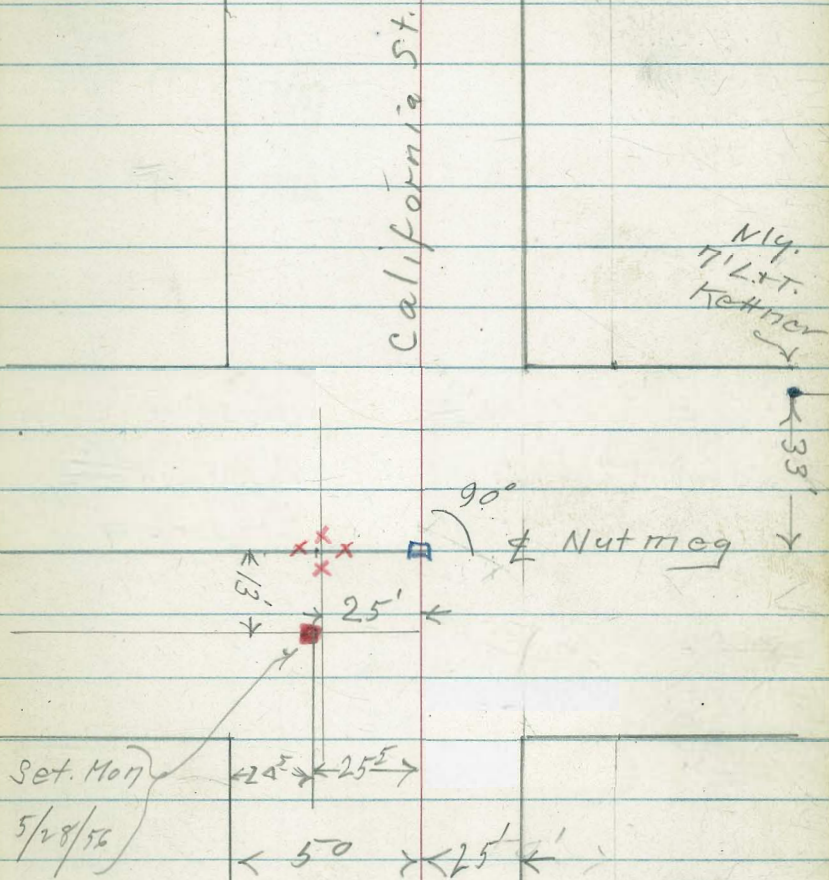 California St.
Nly.
7' L+T.
Kettner
33'
90°
℄ Nutmeg
13'
25'
Set. Mon
5/28/56
24⁵
25⁵
50
25'